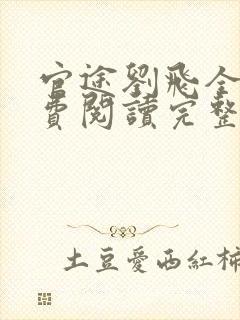 官途劉飛全
費閱讀完整
土豆愛西紅柿